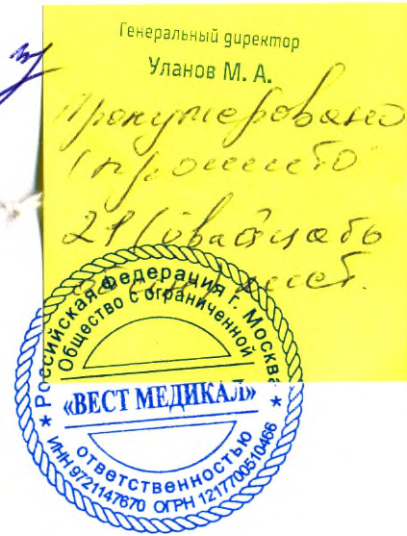 Генеральный директор
Уланов М. А.
Пронумеровано
и прошито
21 (двадцать
лист.
Российская Федерация г. Москва
Общество с ограниченной
«ВЕСТ МЕДИКАЛ»
ответственностью
ИНН 9721147670 ОГРН 1217700510466